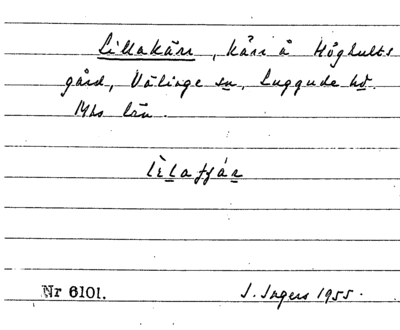 Lillakärr, kärr å Höghults
gård, Välinge sn, Luggude hd.
Mhs län.
Nr 6101. J. Ingers 1955.